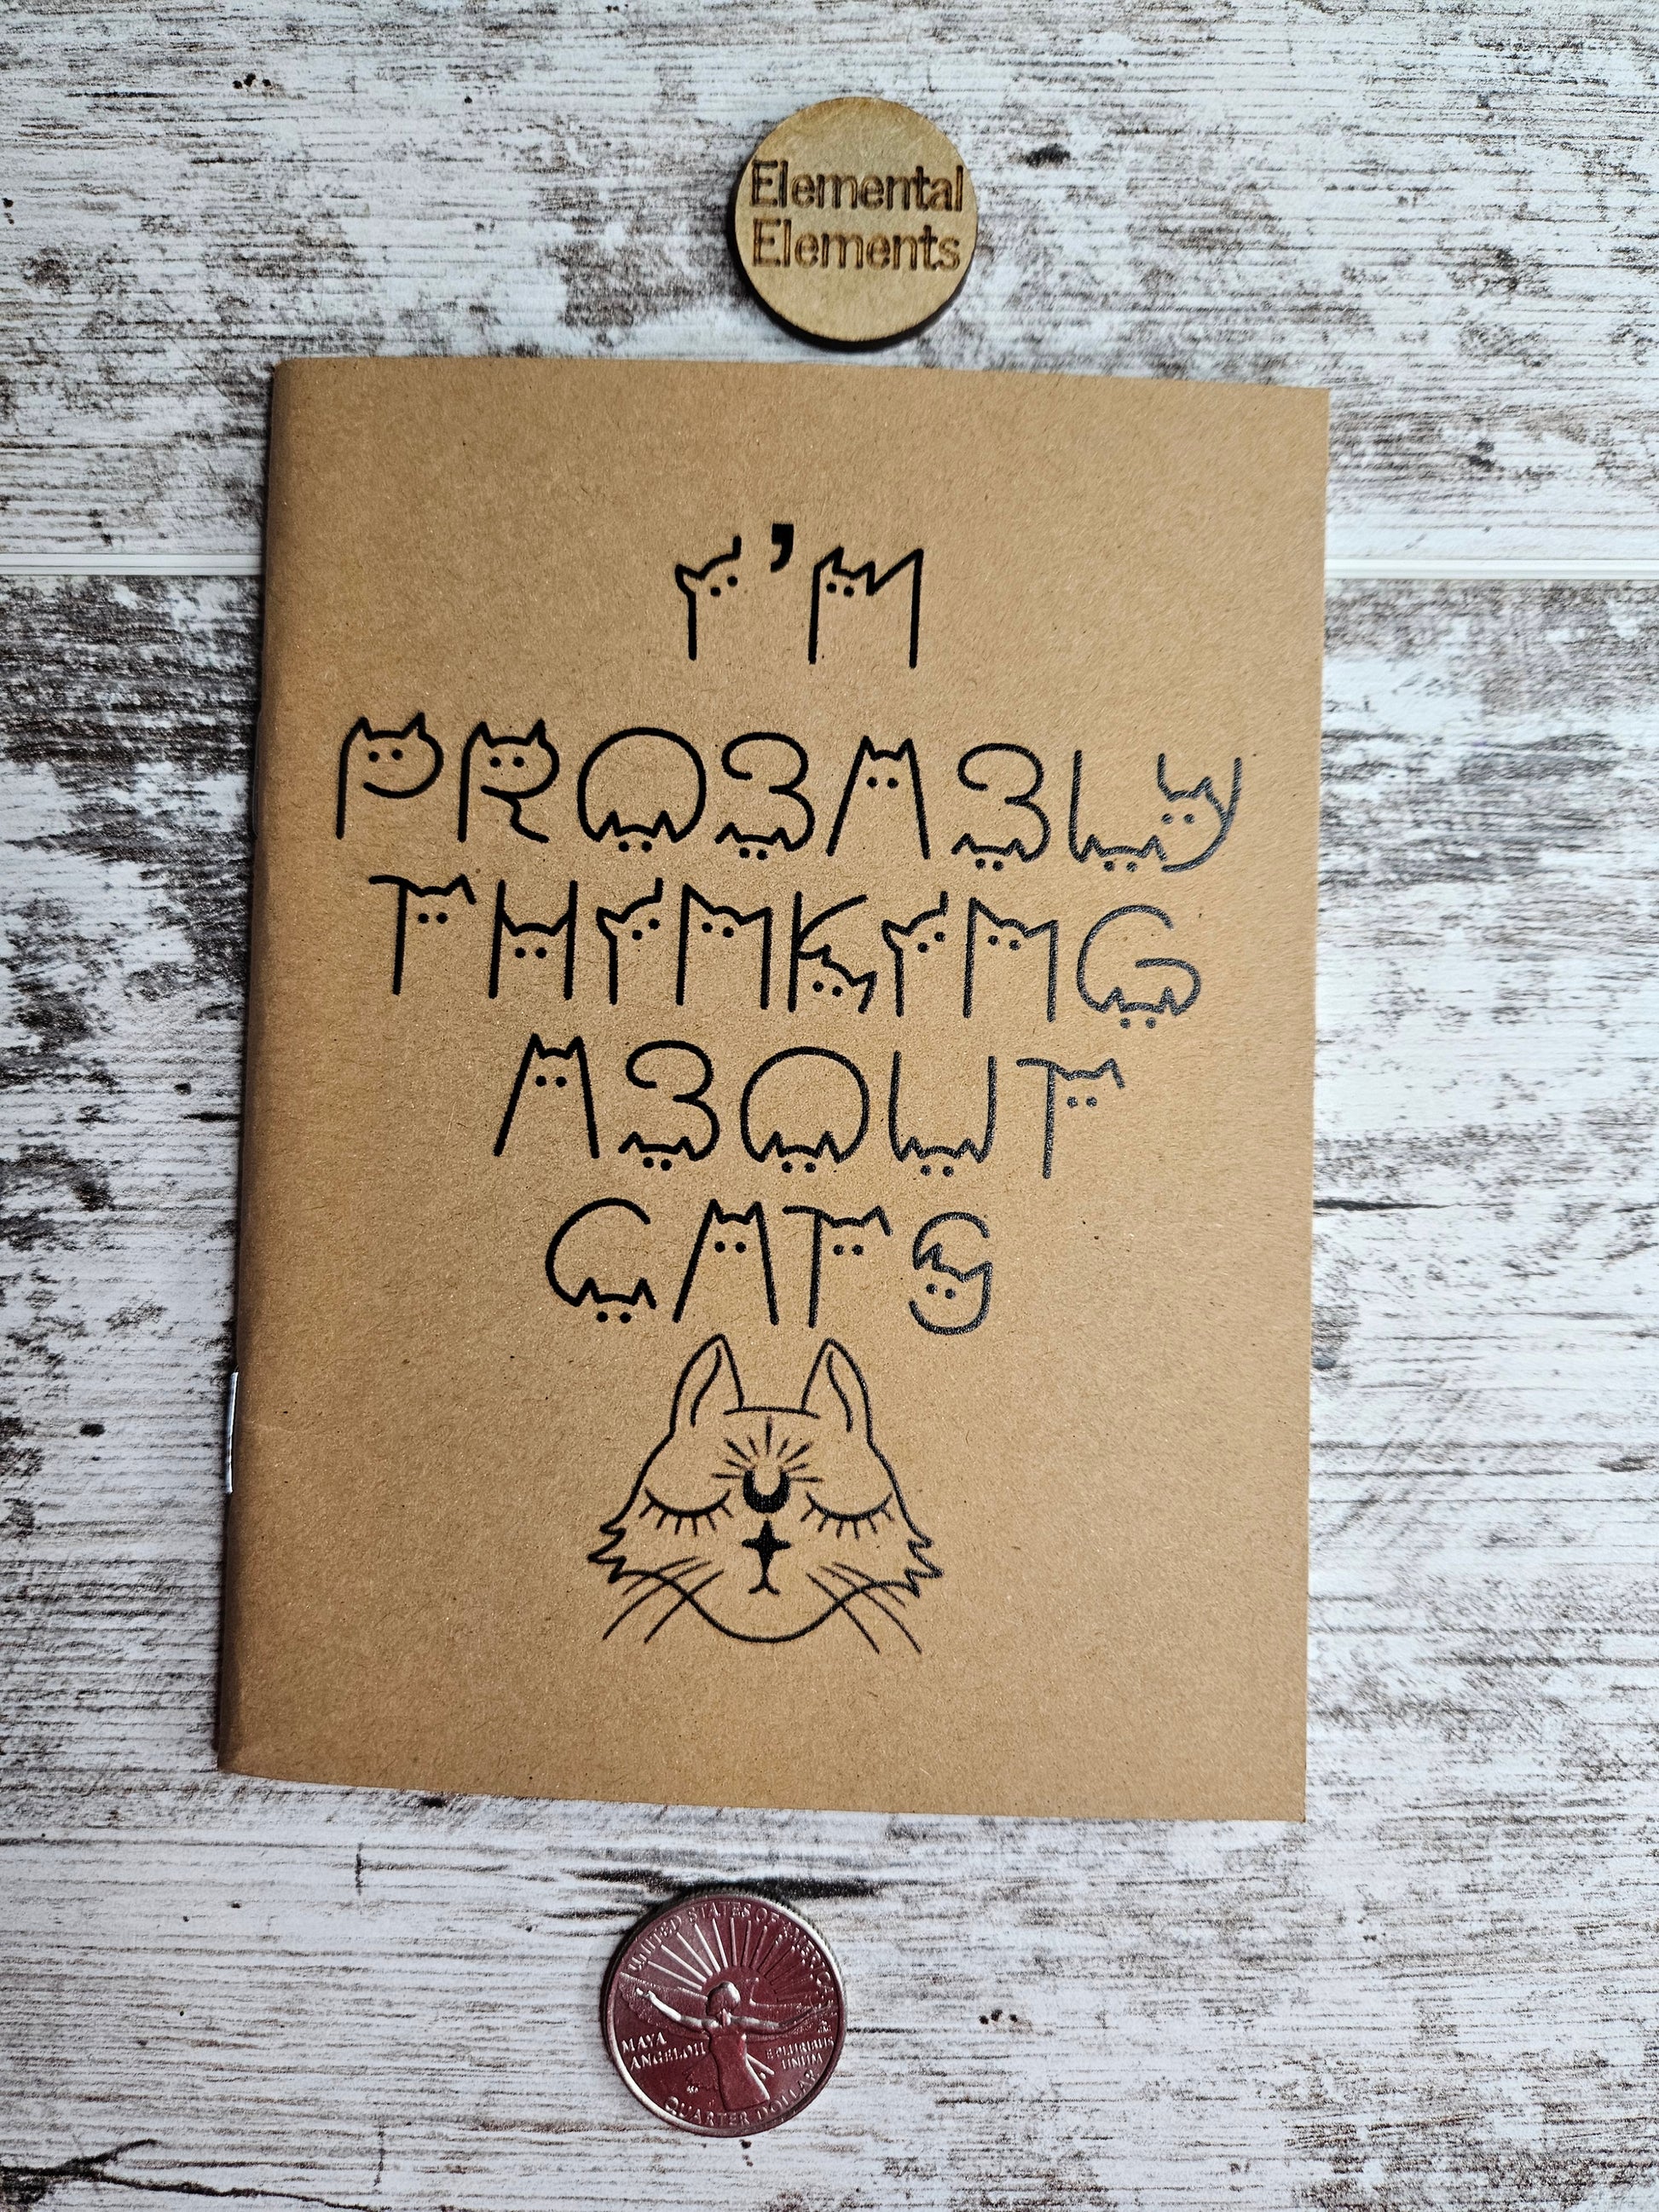 Elemental
Elements
I'M
PROBABLY
THINKING
ABOUT
CATS
UNITED STATES OF AMERICA
MAYA
ANGELOU
E PLURIBUS
UNUM
QUARTER DOLLAR